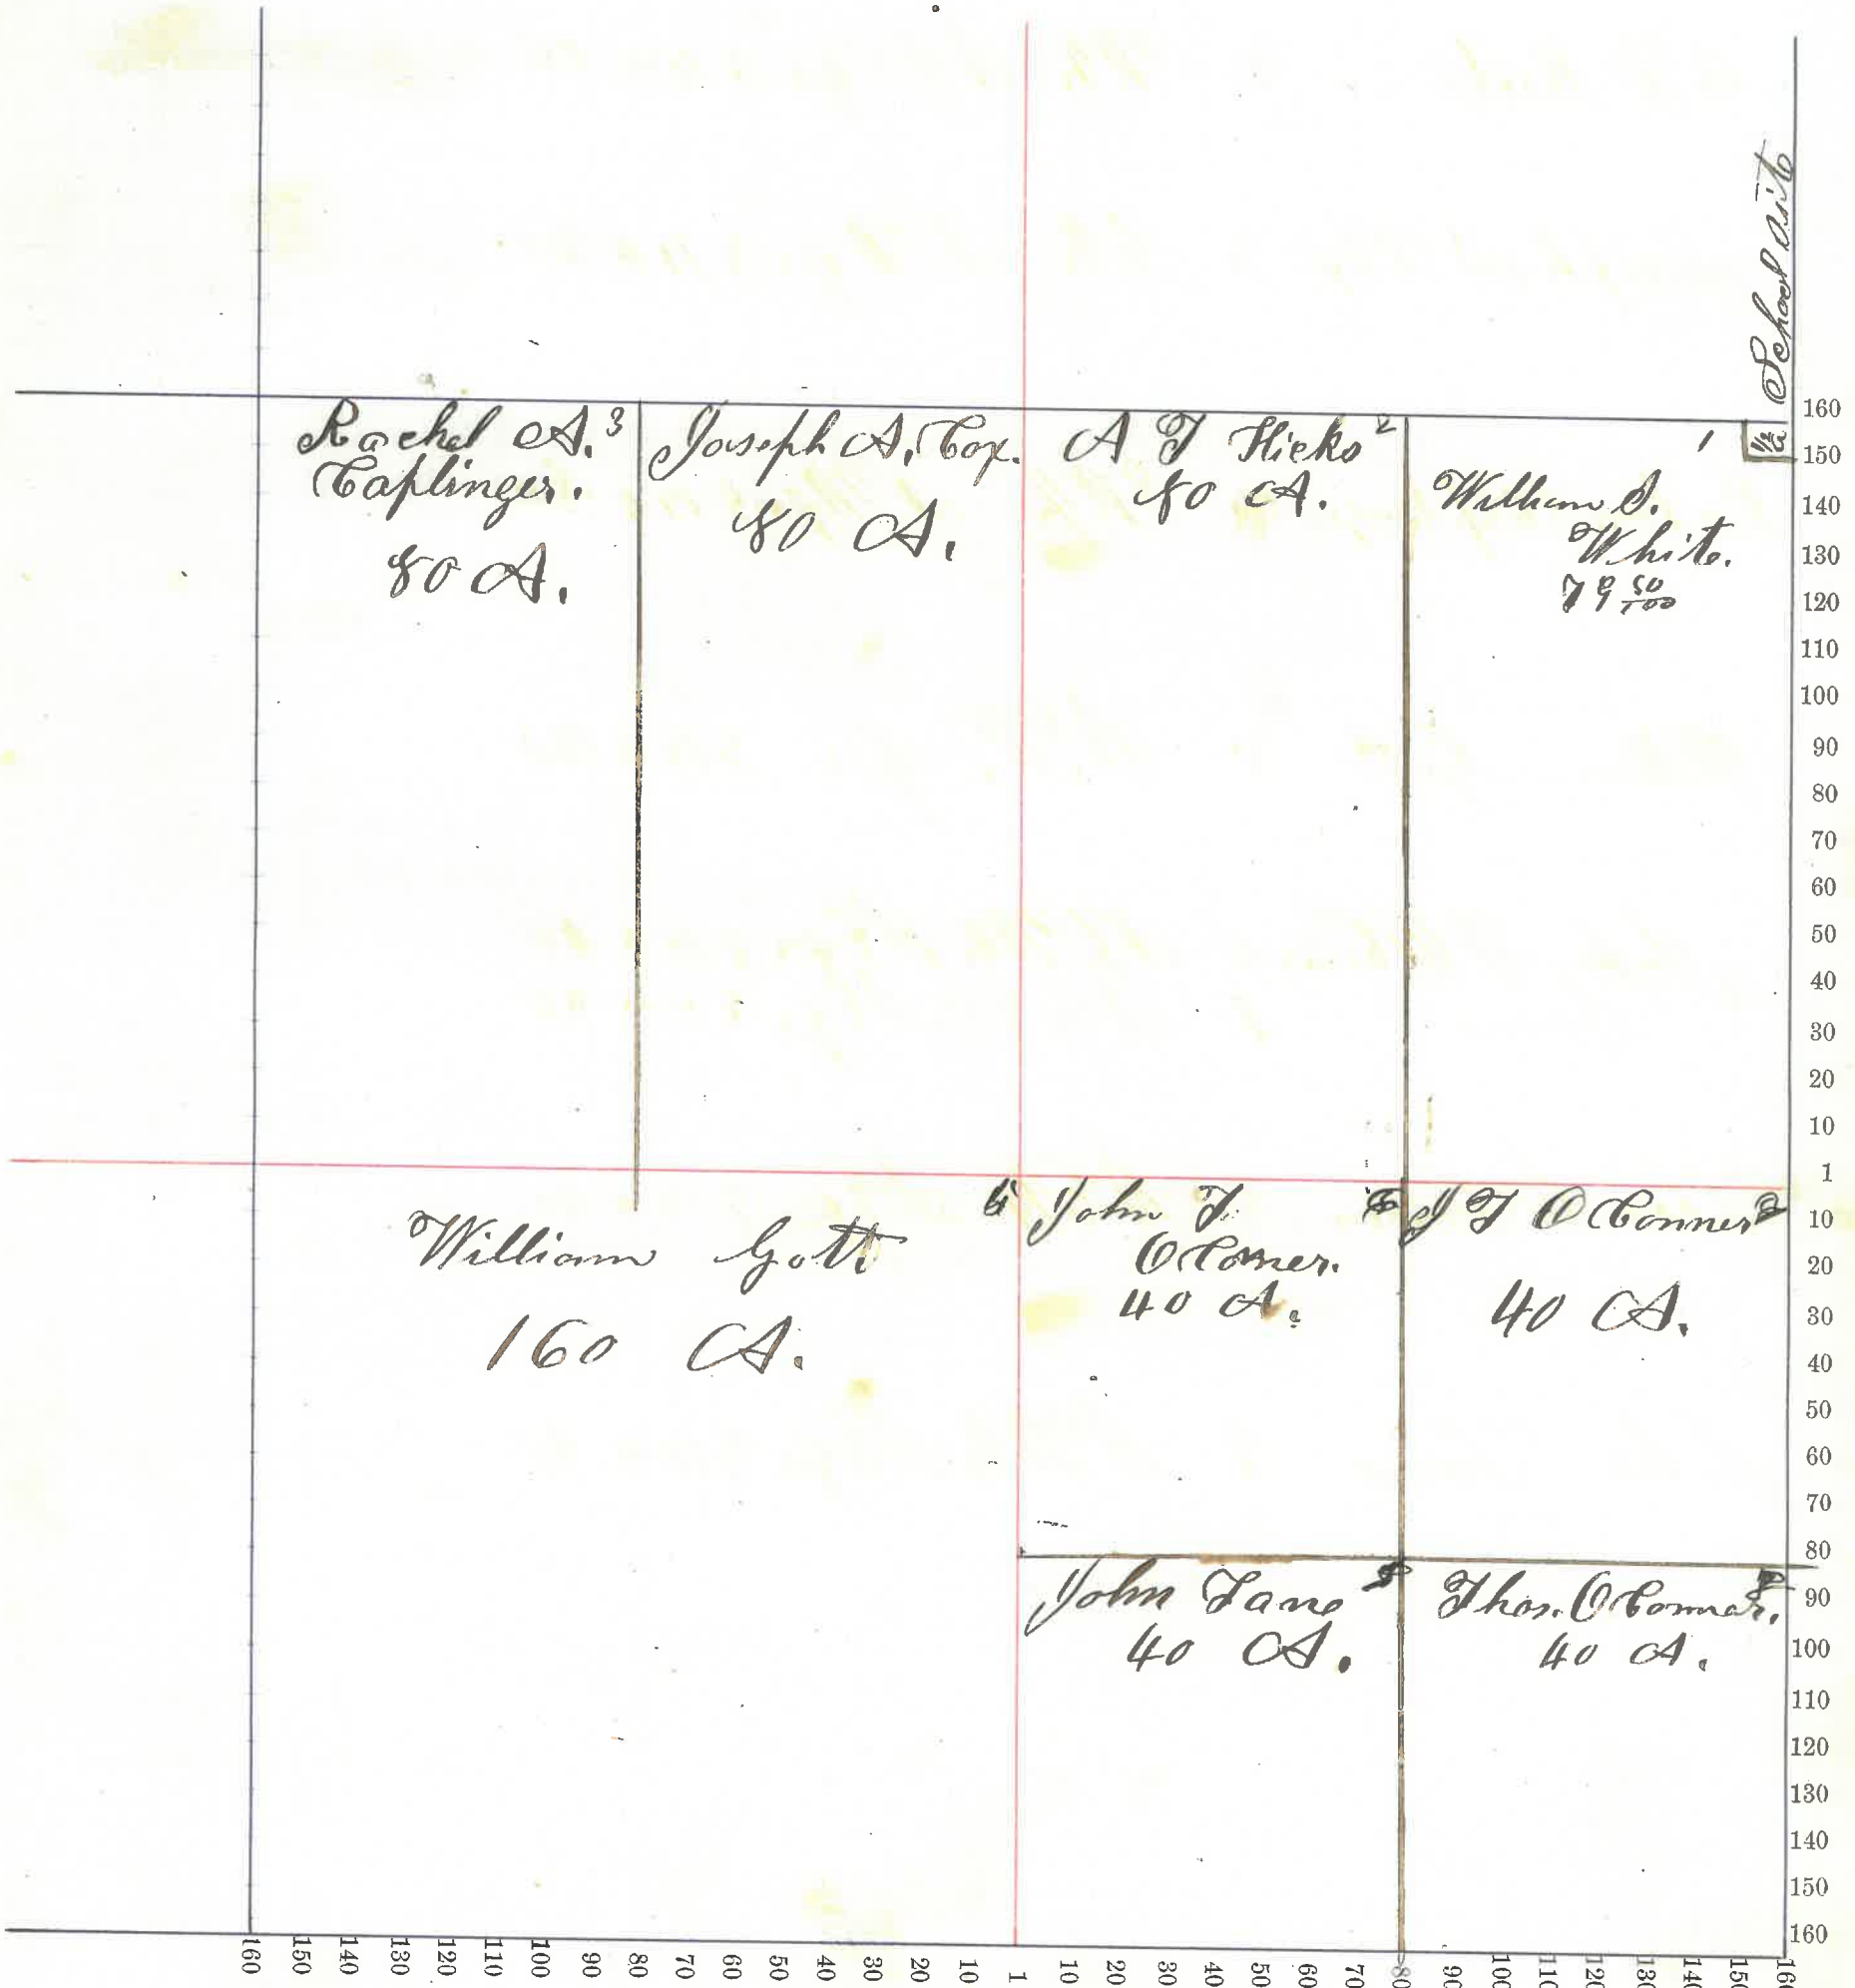 School Site
Rachel A. 3
Caplinger.
80 A.
Joseph A. Cox.
80 A.
A T Hicks 2
80 A.
1
1/2 a
William S.
White.
79 50/100
William Gott
160 A.
4
John T.
OConner.
40 A.
J T OConner
40 A.
John Lane
40 A.
Thos. OConnor.
40 A.
160
150
140
130
120
110
100
90
80
70
60
50
40
30
20
10
1
10
20
30
40
50
60
70
80
90
100
110
120
130
140
150
160
160 150 140 130 120 110 100 90 80 70 60 50 40 30 20 10 1 10 20 30 40 50 60 70 80 90 100 110 120 130 140 150 160